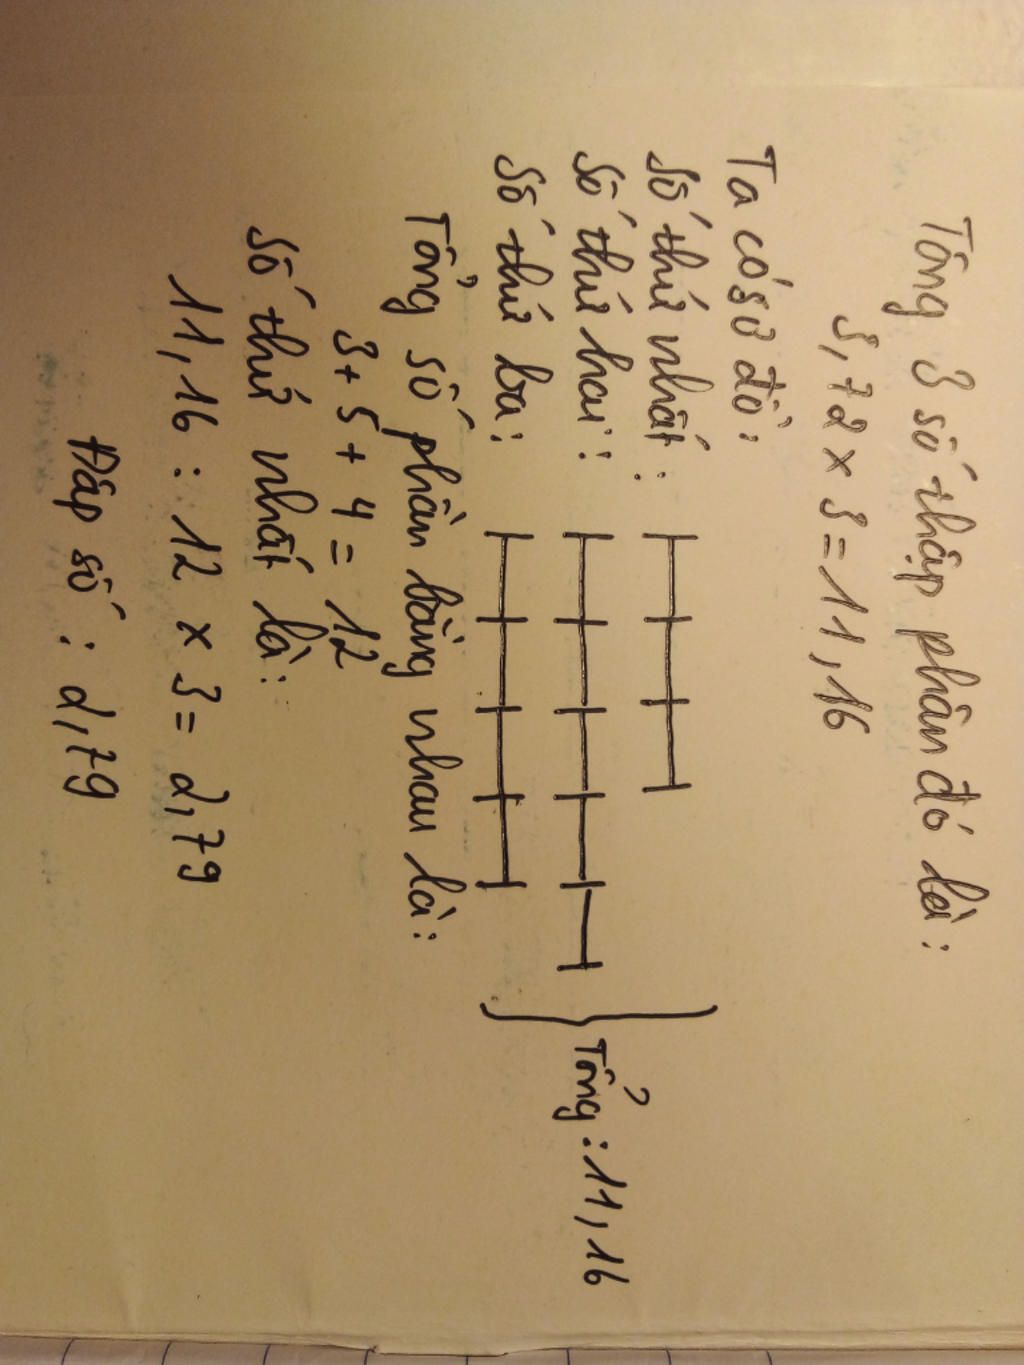 Tổng 3 số thập phân đó là:
3,72 x 3 = 11,16
Ta có sơ đồ:
Số thứ nhất:
Số thứ hai:
Số thứ ba:
Tổng: 11,16
Tổng số phần bằng nhau là:
3 + 5 + 4 = 12
Số thứ nhất là:
11,16 : 12 x 3 = 2,79
Đáp số: 2,79